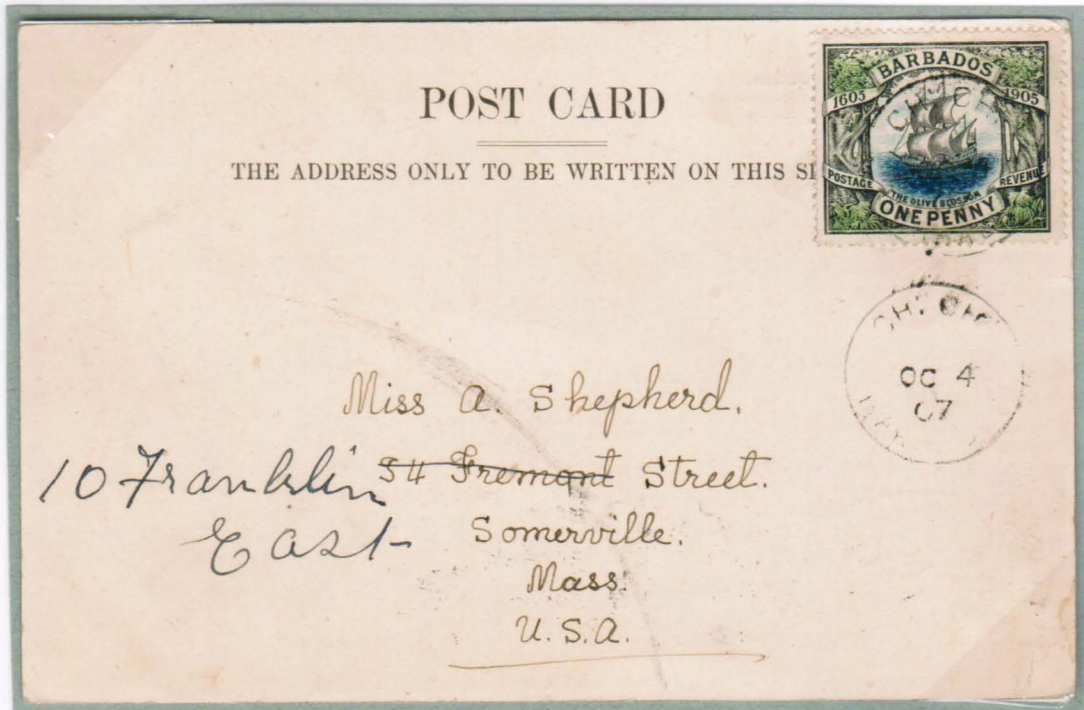 POST CARD
THE ADDRESS ONLY TO BE WRITTEN ON THIS SI
BARBADOS
1605 1905
POSTAGE REVENUE
THE OLIVE BLOSSOM
ONE PENNY
OC 4
07
Miss A. Shepherd,
54 Fremont Street.
10 Franklin
East
Somerville.
Mass.
U.S.A.